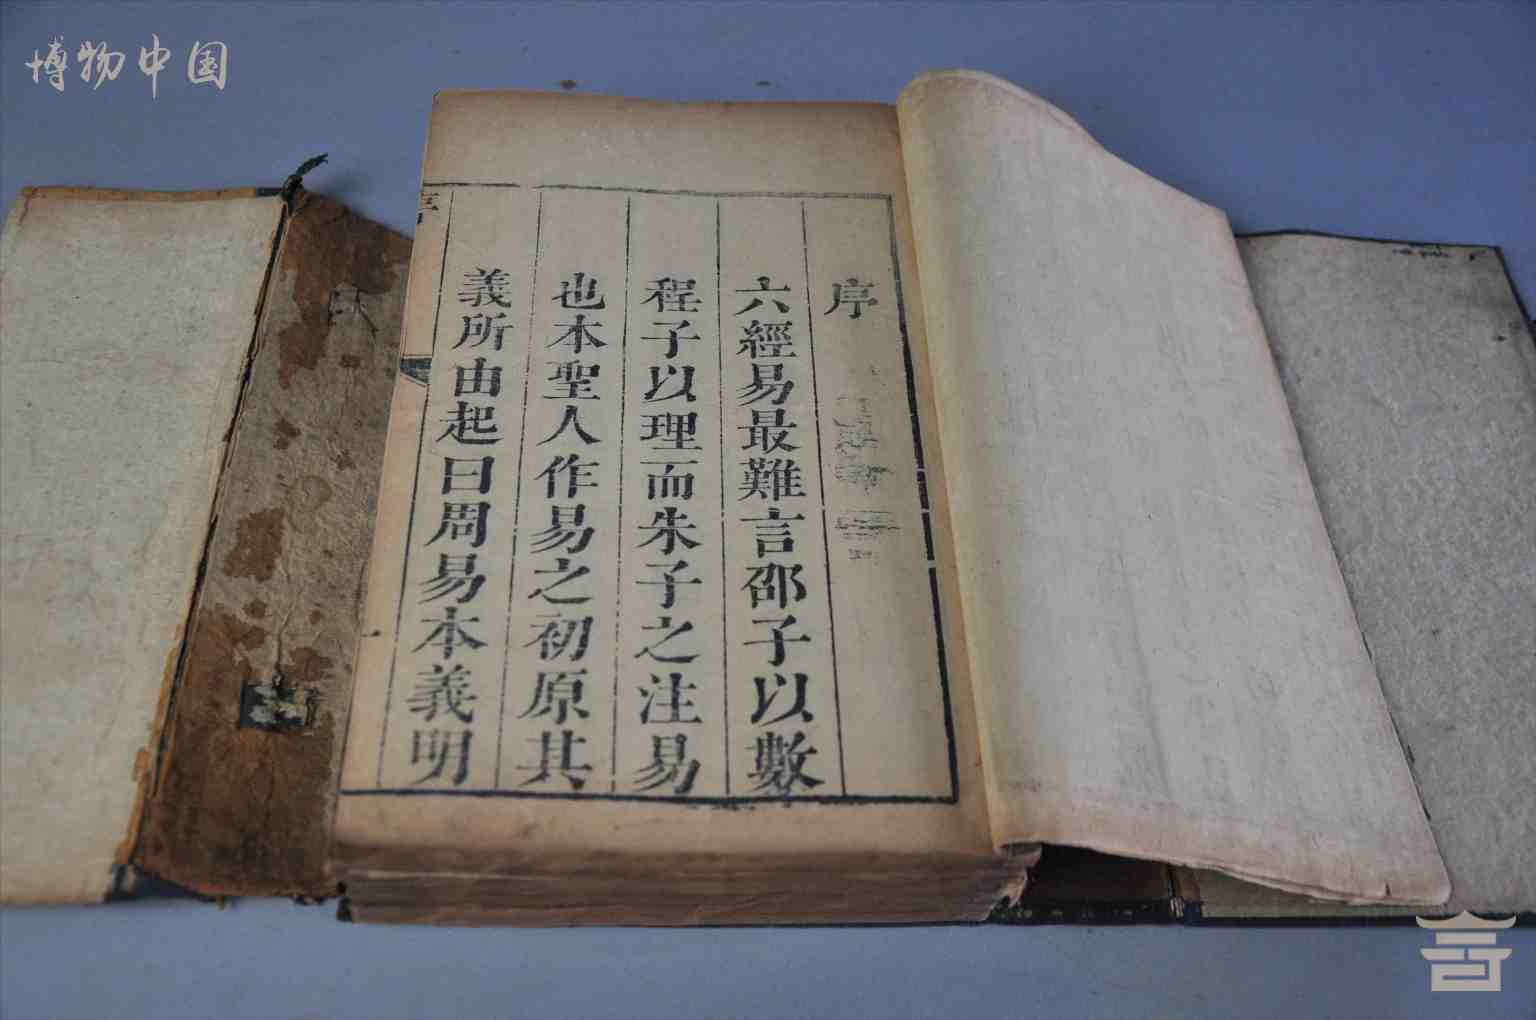 博物中国
序
六經易最難言邵子以數
程子以理而朱子之注易
也本聖人作易之初原其
義所由起曰周易本義明